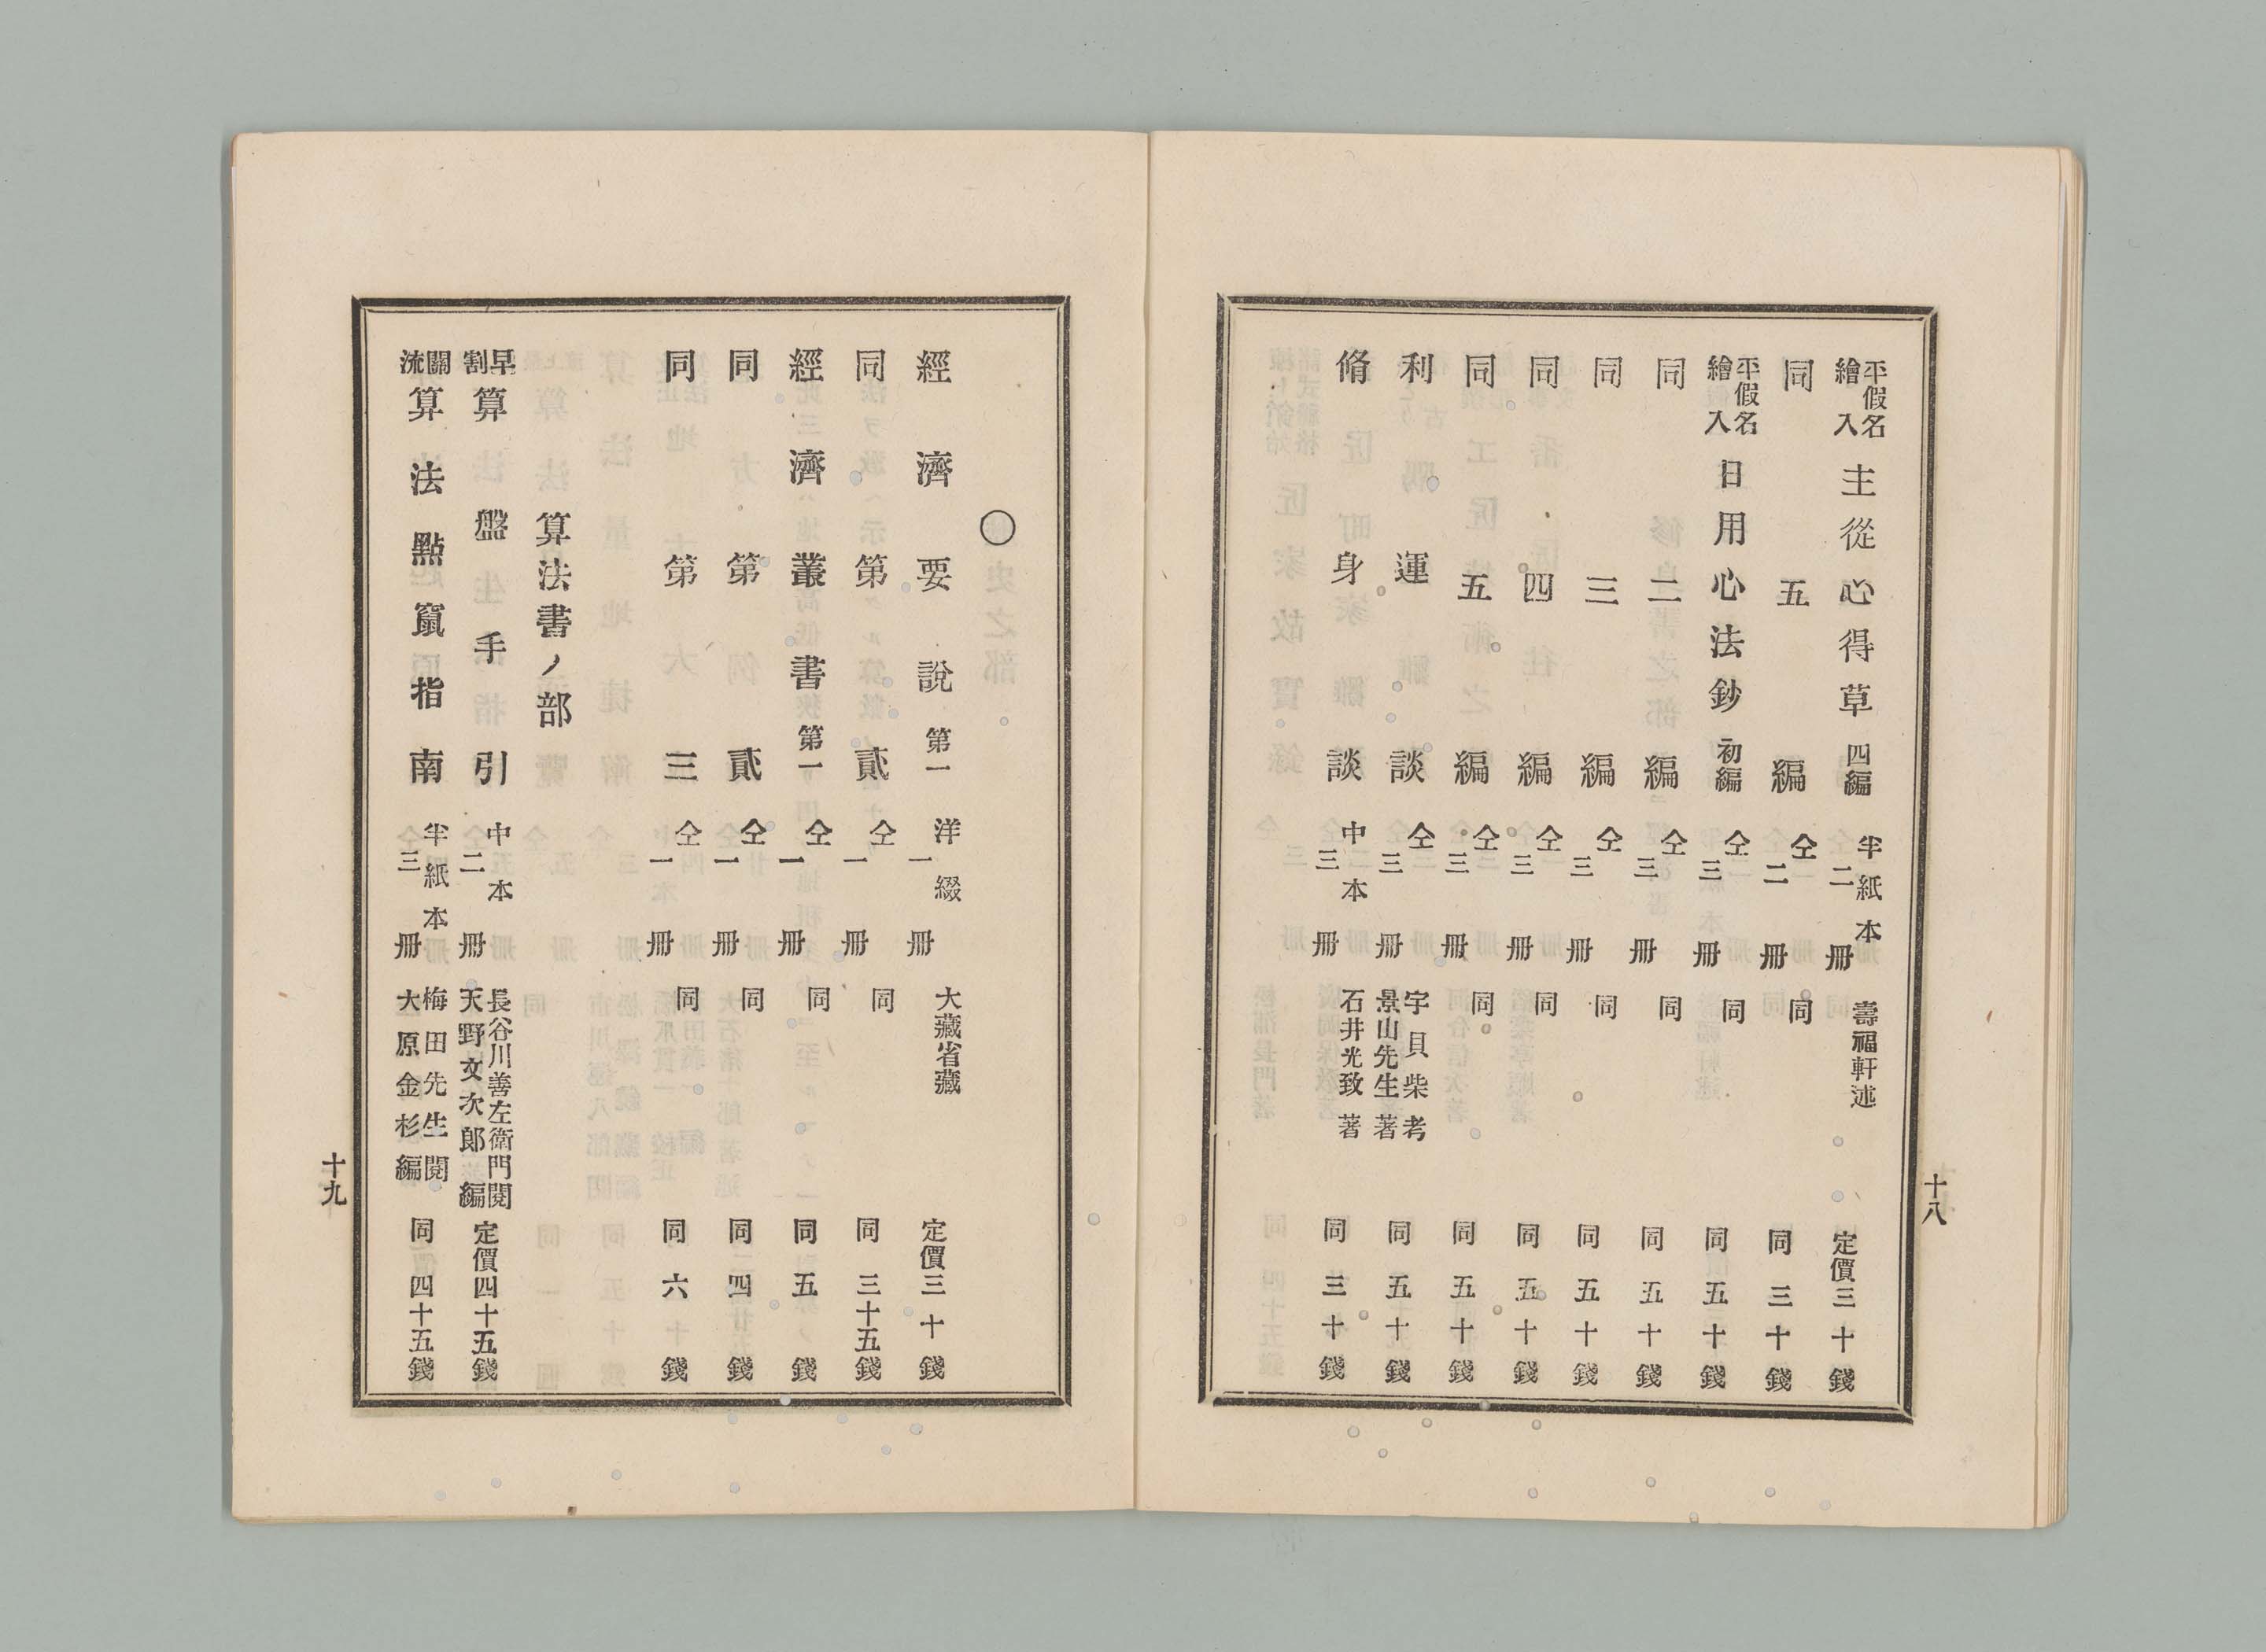 平假名
繪入 主從心得草 四編 半紙本 二冊 壽福軒述 定價三十錢
同 五編 仝 二冊 同 同 三十錢
平假名
繪入 日用心法鈔 初編 仝 三冊 同 同 五十錢
同 二編 仝 三冊 同 同 五十錢
同 三編 仝 三冊 同 同 五十錢
同 四編 仝 三冊 同 同 五十錢
同 五編 仝 三冊 同 同 五十錢
利運談 仝 三冊 字貝柴考 景山先生著 同 五十錢
脩身談 中本 三冊 石井光致著 同 三十錢
十八
○
經濟要說 第一 洋綴 一冊 大藏省藏 定價三十錢
同 第貳 仝 一冊 同 同 三十五錢
經濟叢書 第一 仝 一冊 同 同 五錢
同 第貳 仝 一冊 同 同 四錢
同 第三 仝 一冊 同 同 六錢
算法書ノ部
早割 算盤手引 中本 二冊 長谷川善左衛門閱 天野文次郞編 定價四十五錢
關流 算法點竄指南 半紙本 三冊 梅田先生閱 大原金杉編 同 四十五錢
十九